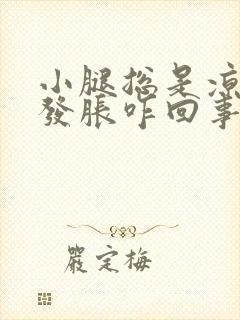 小腿总是凉
發脹咋回事
嚴定梅